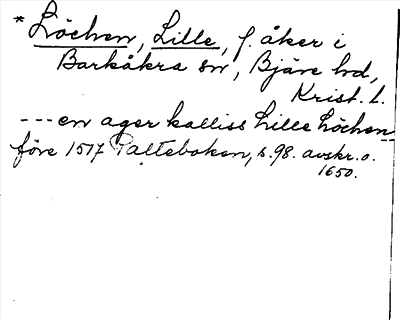 * Löchen, Lille, f. åker i
Barkåkra sn, Bjäre hd,
Krist. l.
--- en ager kalliss Lille Löchen
före 1517 Palteboken, s. 98. avskr. o.
1650.